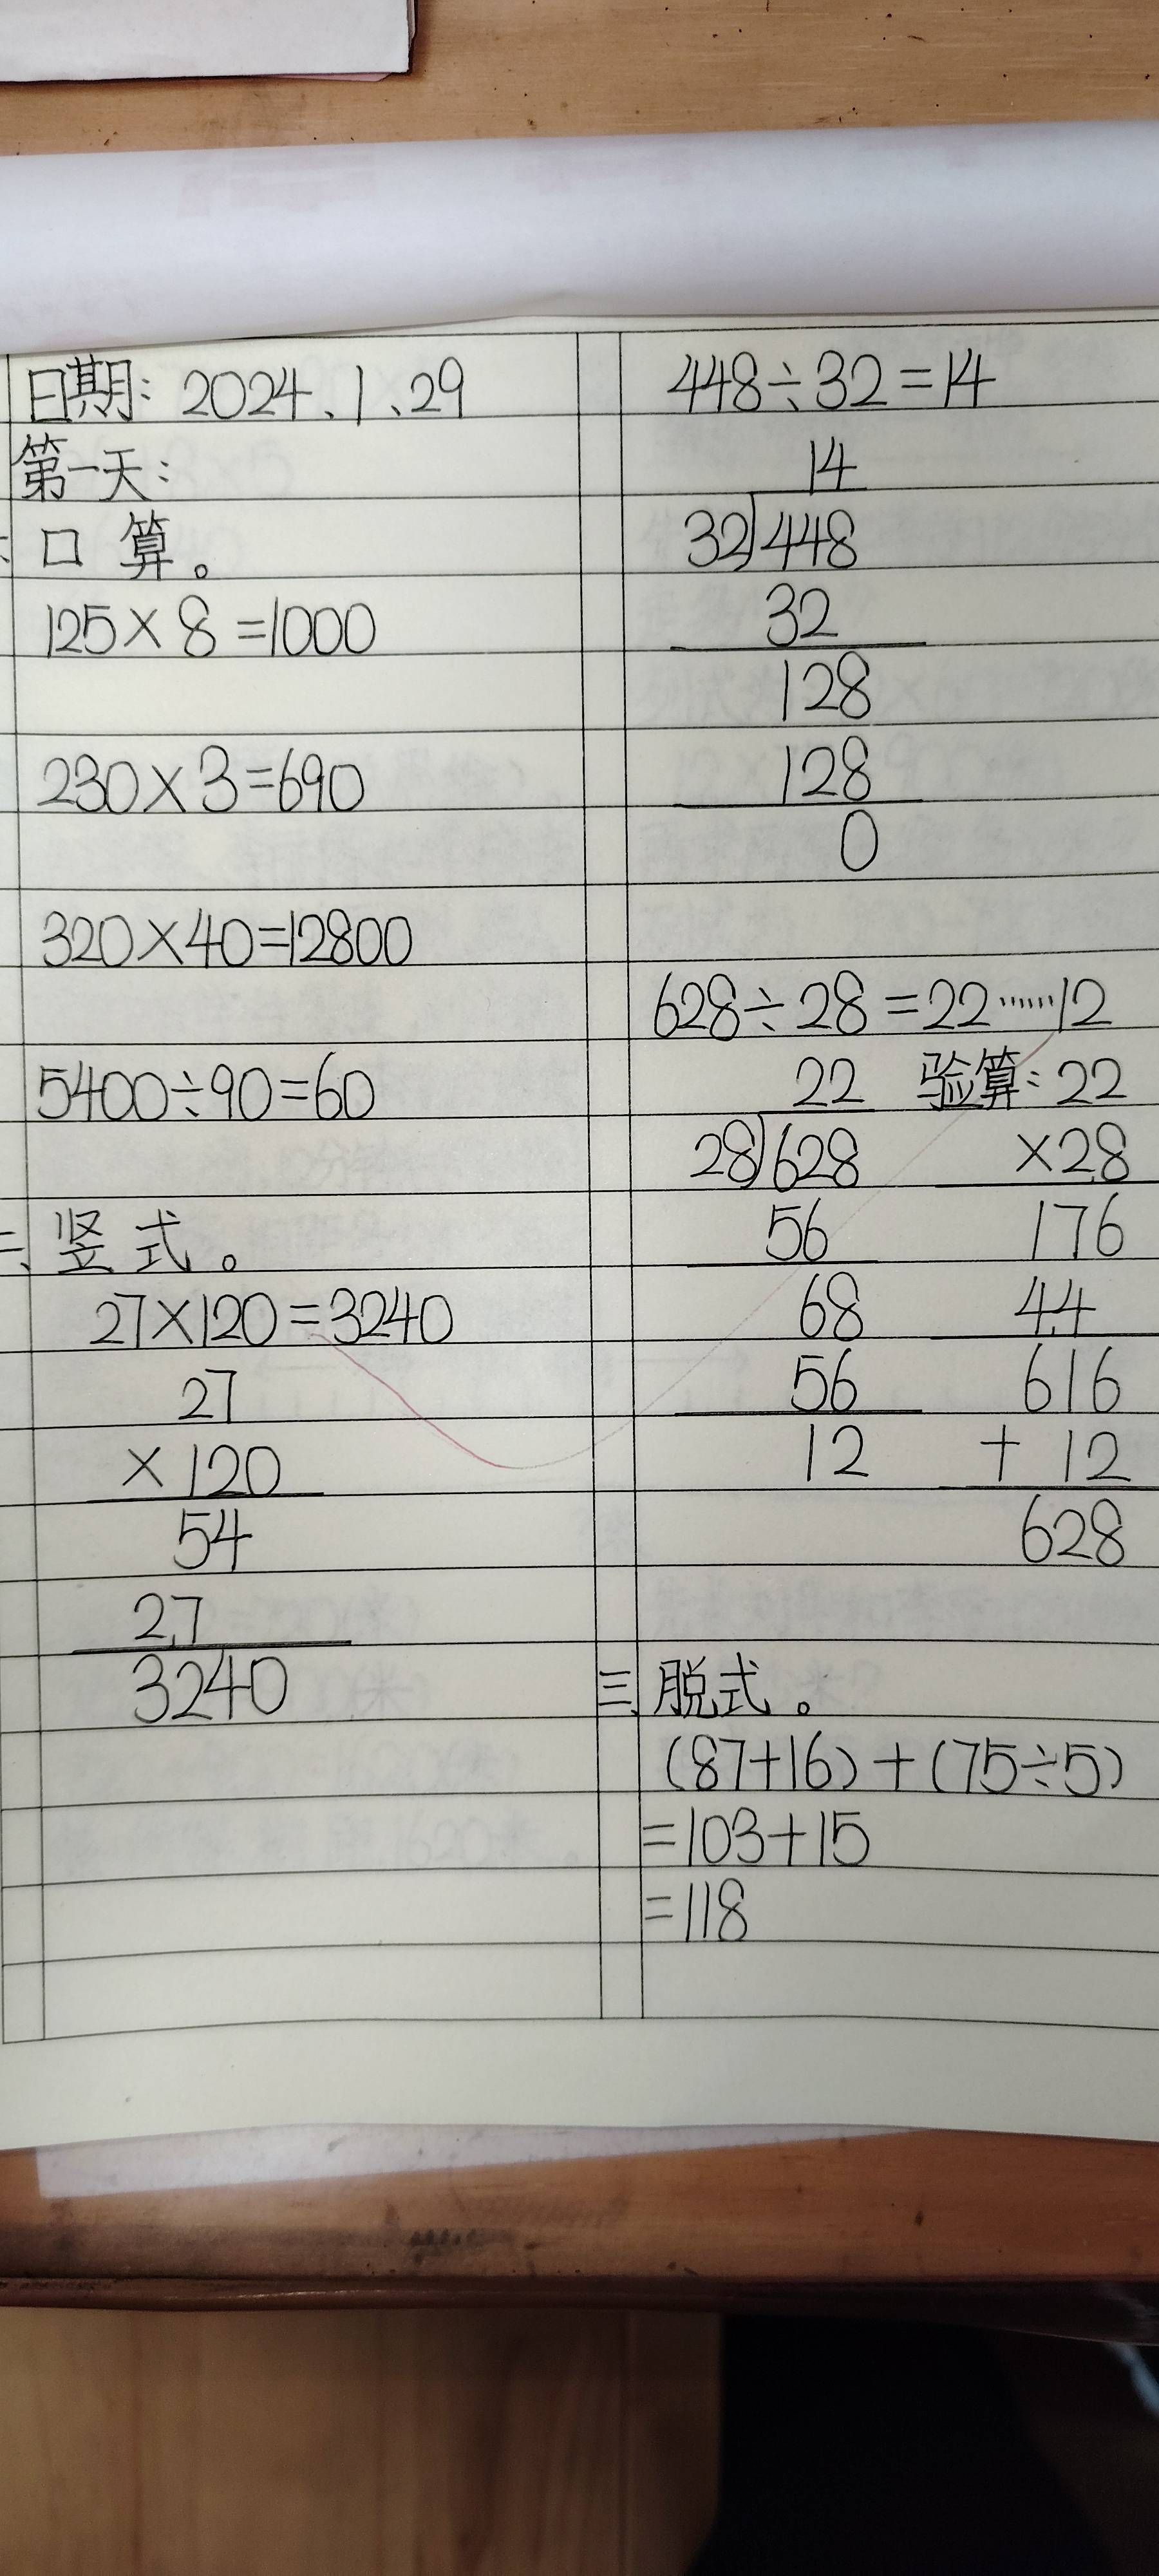 日期：2024、1、29
第一天：
、口算。
125×8=1000
230×3=690
320×40=12800
5400÷90=60
二、竖式。
27×120=3240
27
×120
54
27
3240
448÷32=14
14
32)448
32
128
128
0
628÷28=22……12
22 验算：22
28)628 ×28
56 176
68 44
56 616
12 + 12
628
三、脱式。
(87+16)+(75÷5)
=103+15
=118